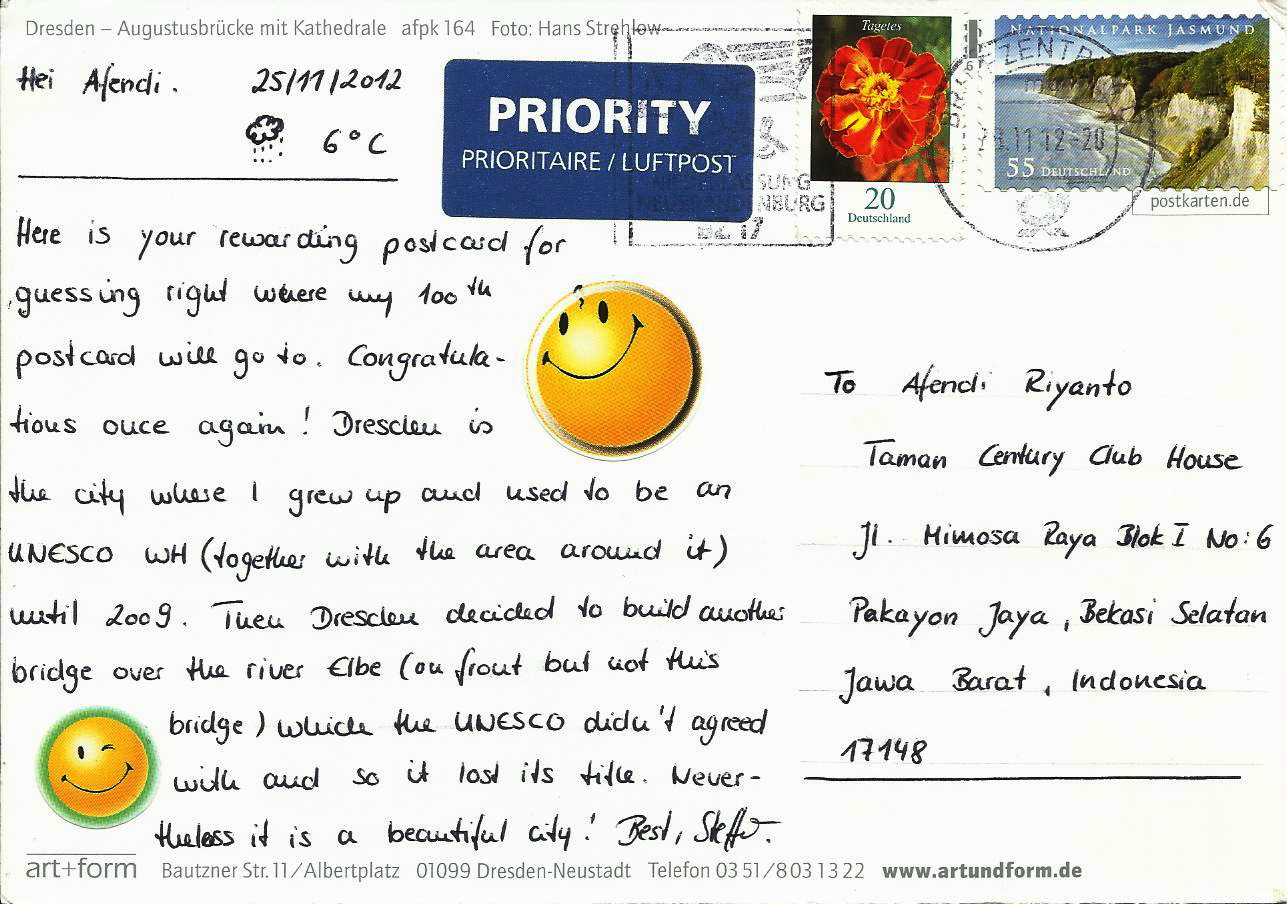 Dresden – Augustusbrücke mit Kathedrale afpk 164 Foto: Hans Strehlow
Hei Afendi. 25/11/2012
6°C
PRIORITY
PRIORITAIRE / LUFTPOST
Tagetes
20
Deutschland
NATIONALPARK JASMUND
55 DEUTSCHLAND
postkarten.de
BZ 17
Here is your rewarding postcard for
guessing right where my 100th
postcard will go to. Congratula-
tions once again! Dresden is
the city where I grew up and used to be an
UNESCO WH (together with the area around it)
until 2009. Then Dresden decided to build another
bridge over the river Elbe (on front but not this
bridge) which the UNESCO didn't agreed
with and so it lost its title. Never-
theless it is a beautiful city! Best, Steffi.
To Afendi Riyanto
Taman Century Club House
Jl. Mimosa Raya Blok I No: 6
Pakayon Jaya, Bekasi Selatan
Jawa Barat, Indonesia
17148
art+form Bautzner Str. 11/Albertplatz 01099 Dresden-Neustadt Telefon 03 51/8 03 13 22 www.artundform.de